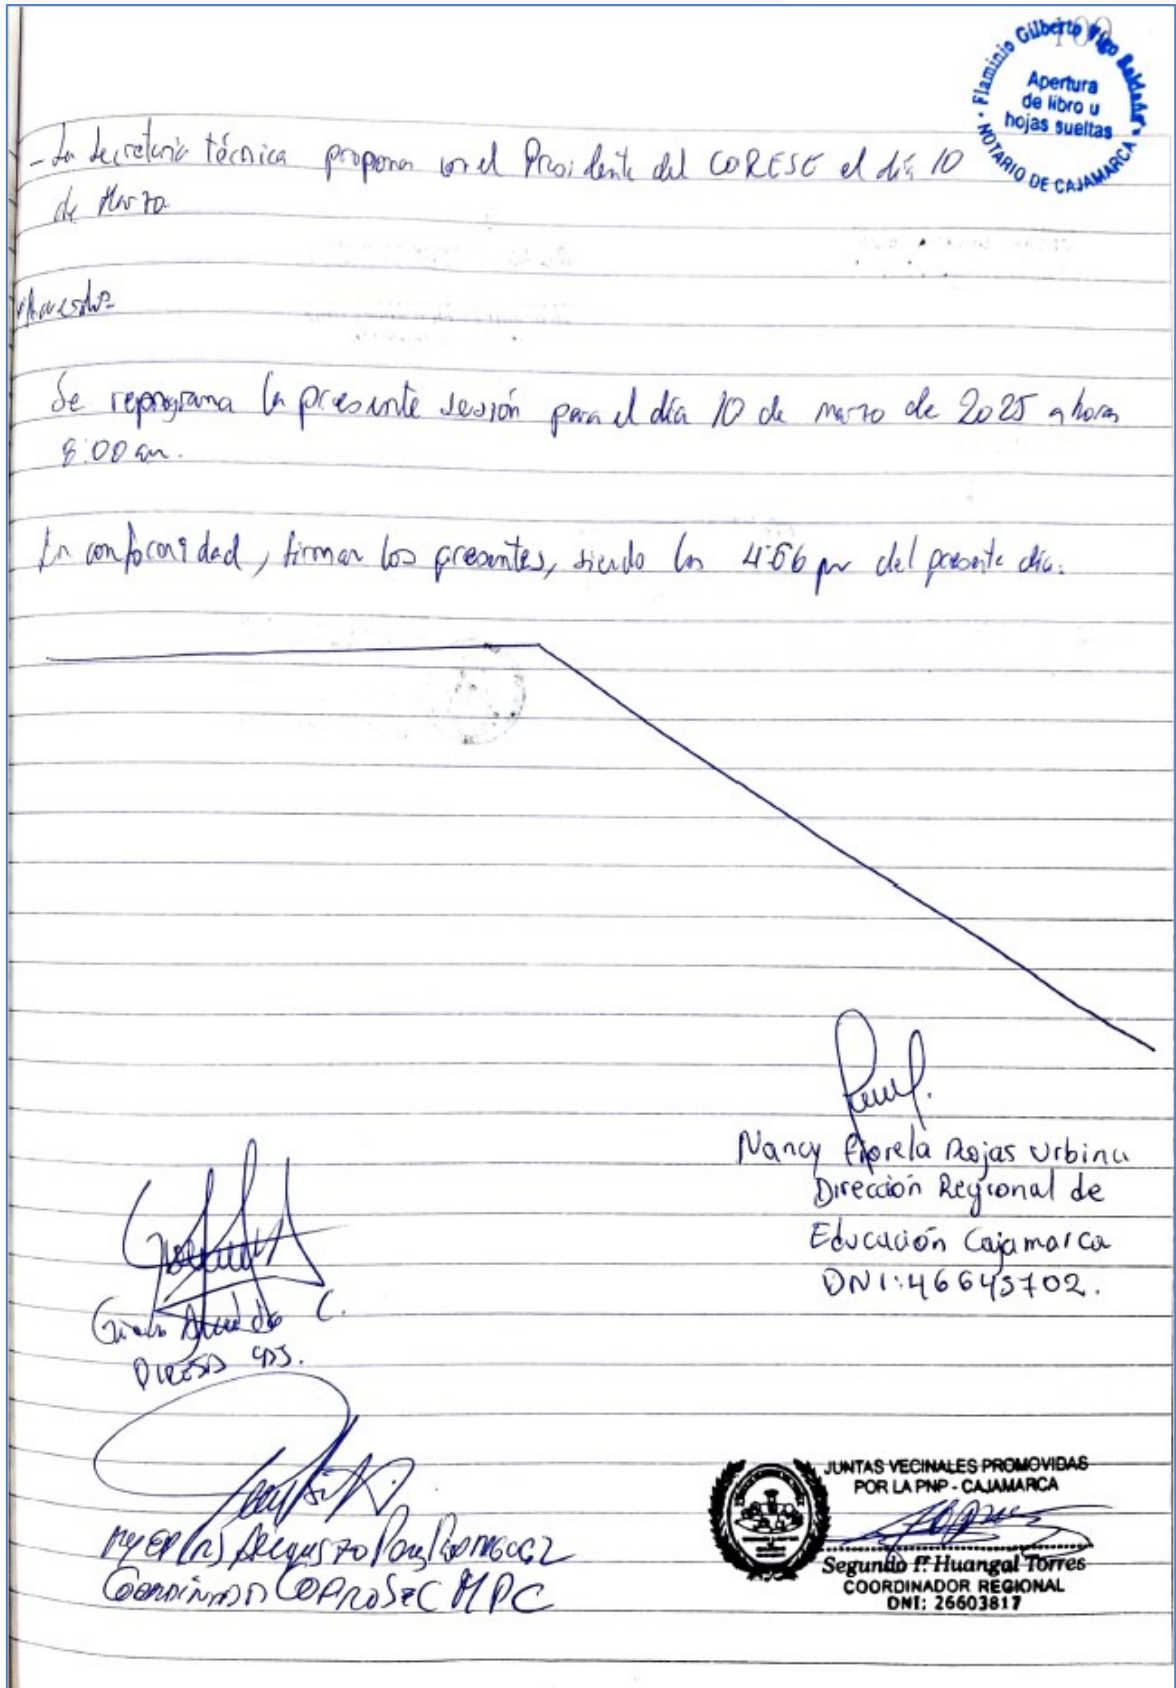 109
Flaminio Gilberto Vigo Saldaña
Apertura
de libro u
hojas sueltas
NOTARIO DE CAJAMARCA
- La Secretaria técnica propone con el Presidente del CORESE el día 10
de Marzo
Acuerdos
Se reprograma la presente sesión para el día 10 de marzo de 2025 a horas
8:00 am.
En conformidad, firman los presentes, siendo las 4:56 pm del presente día.
Nancy Fiorela Rojas Urbina
Dirección Regional de
Educación Cajamarca
DNI: 46645702.
C.
DIRESA CAJ.
COORDINADOR COPROSEC MPC
JUNTAS VECINALES PROMOVIDAS
POR LA PNP - CAJAMARCA
Segundo F. Huangal Torres
COORDINADOR REGIONAL
DNI: 26603817